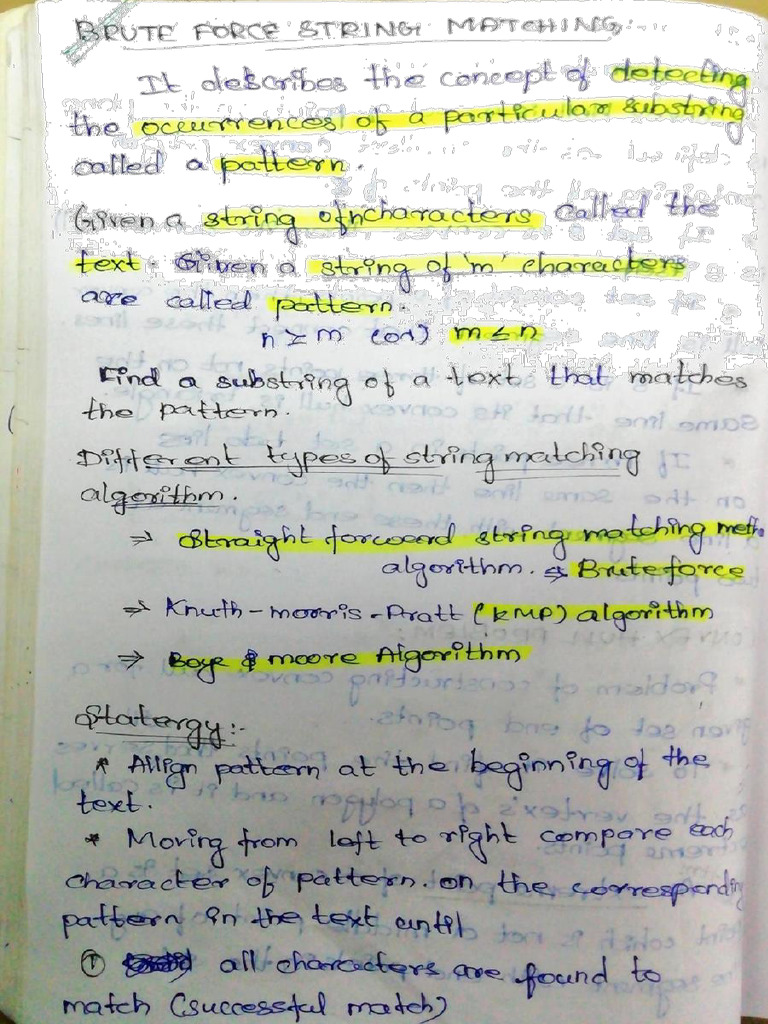 BRUTE FORCE STRING MATCHING:
It describes the concept of detecting
the occurrences of a particular substring
called a pattern.
Given a string of n characters called the
text. Given a string of 'm' characters
are called pattern.
n ≥ m (or) m ≤ n
Find a substring of a text that matches
the pattern.
Different types of string matching
algorithm.
⇒ Straight forward string matching
algorithm. ⇒ Brute force
⇒ Knuth-morris-Pratt (KMP) algorithm
⇒ Boye & moore Algorithm
Statergy:-
* Allign pattern at the beginning of the
text.
* Moving from left to right compare each
character of pattern. on the corresponding
pattern in the text until
① all characters are found to
match (successful match)